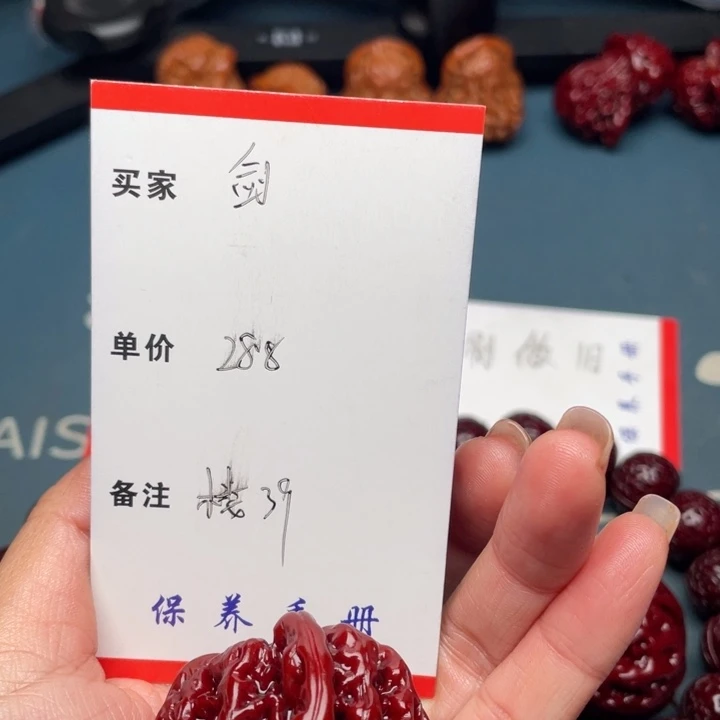 买家 剑
单价 288
备注 楼39
保养手册
AIS